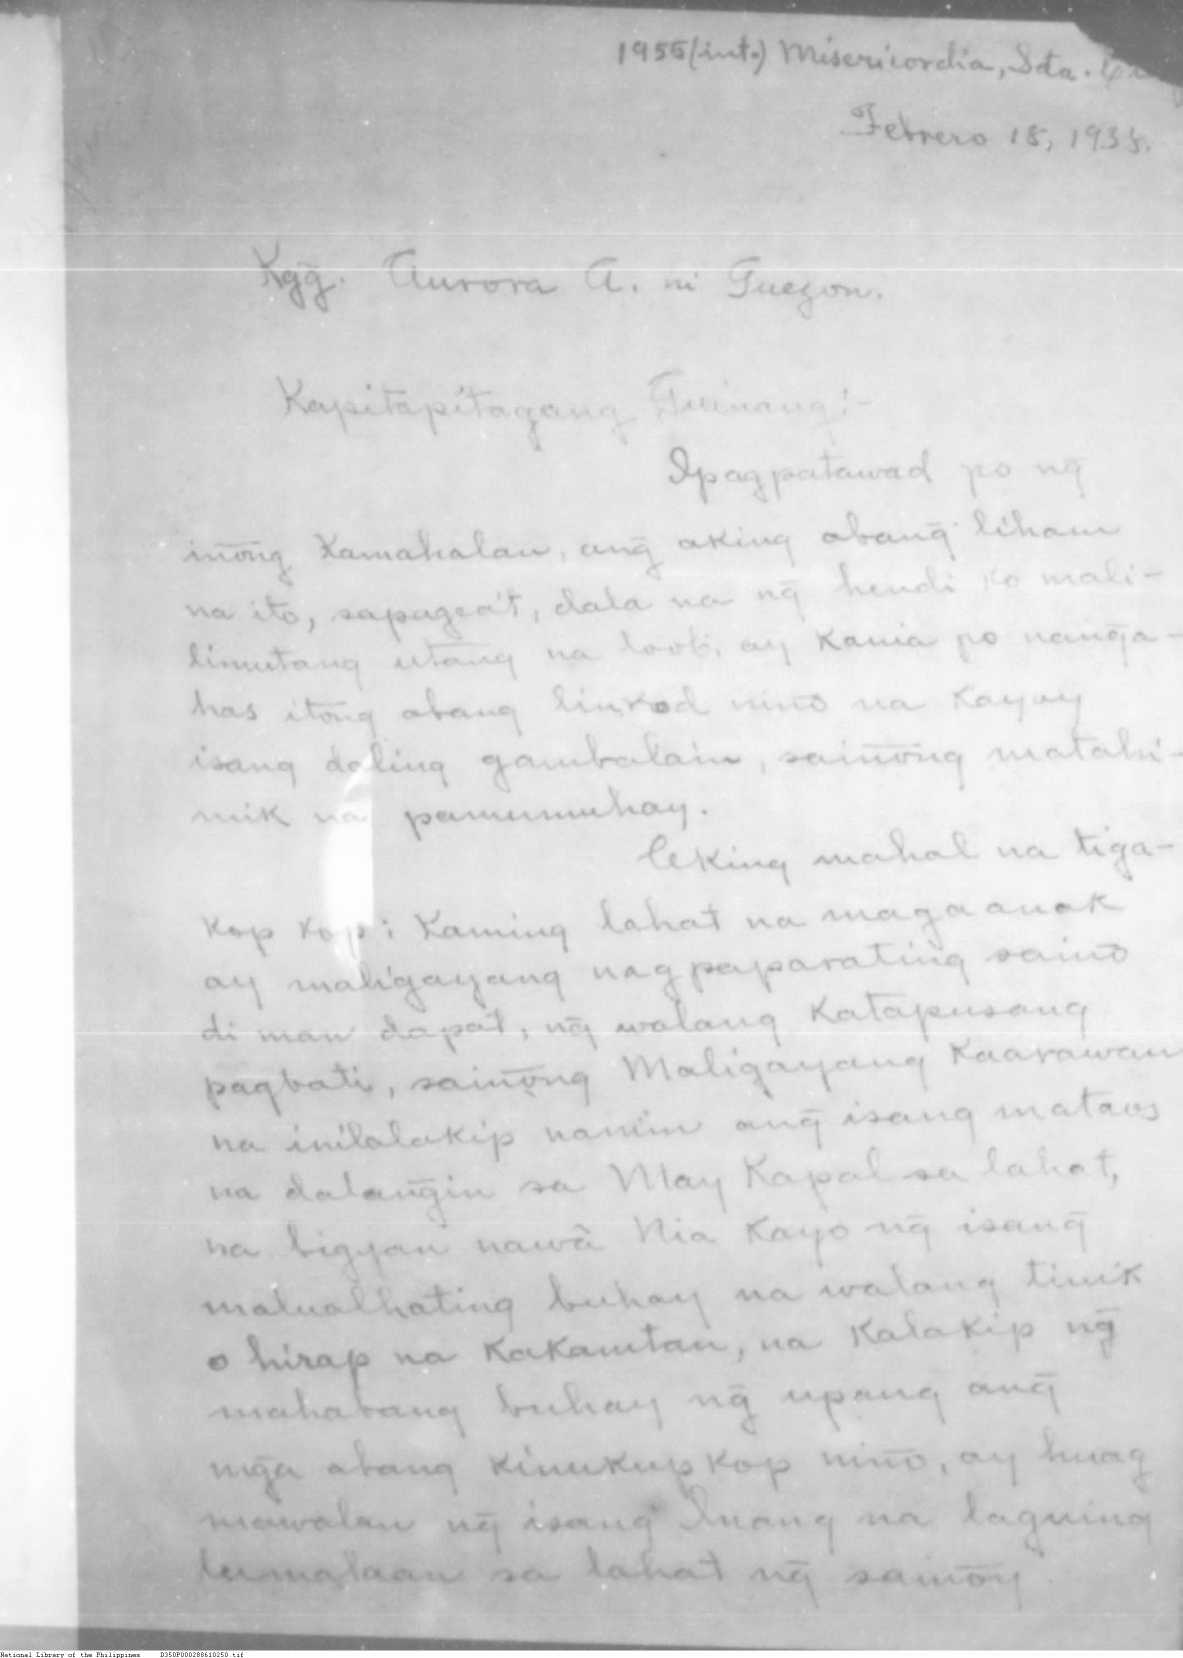 1955 (int.) Misericordia, Sta.
Febrero 18, 1938.
Kgg̃. Aurora A. ni Quezon.
Kapitapitagang Guinang:-
Ipagpatawad po ng̃
inõng Kamahalan, ang̃ aking abang̃ liham
na ito, sapagca't, dala na ng̃ hendi ko mali-
limutang utang na loob, ay kania po nang̃a-
has itong abang linkod niño na kayoy
isang daling gambalain, sainõng matahi-
mik na pamumuhay.
Aking mahal na tiga-
kop kop: Kaming lahat na magaanak
ay maligayang nagpaparating sainõ
di man dapat, ng̃ walang katapusang
pagbati, sainõng Maligayang Kaarawan
na inilalakip namin ang̃ isang mataos
na dalang̃in sa May Kapal sa lahat,
na bigyan nawâ Nia Kayo ng̃ isang̃
malualhating buhay na walang tinik
o hirap na kakamtan, na kalakip ng̃
mahabang buhay ng̃ upang ang̃
mg̃a abang kinukupkop niño, ay huag
mawalan ng̃ isang Inang na laguing
lumalaan sa lahat ng̃ sainõy
National Library of the Philippines D350P000288610250.tif